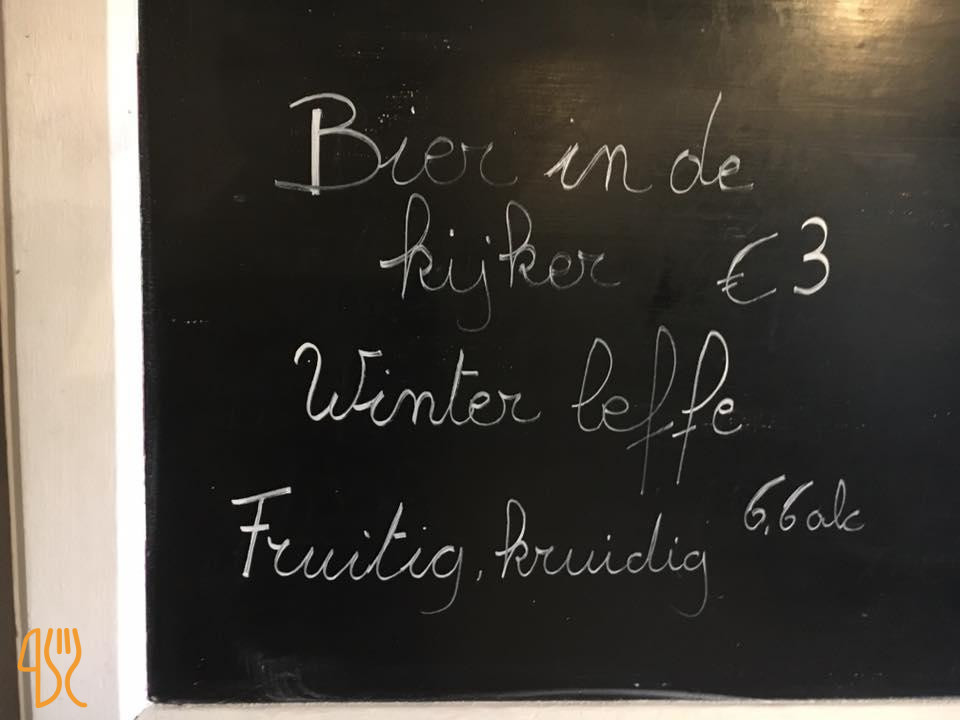 Bier in de
kijker €3
Winter leffe
Fruitig, kruidig 6,6 alc